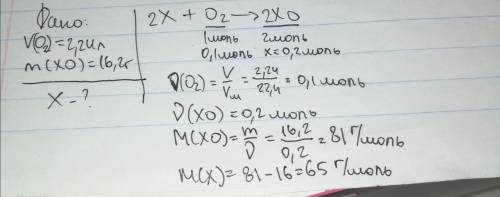 Дано:
V(O₂)=2,24л
m(XO)=16,2г
X-?
2X + O₂ → 2XO
1моль 2моль
0,1моль x=0,2моль
ν(O₂)=V/Vм=2,24/22,4=0,1моль
ν(XO)=0,2моль
M(XO)=m/ν=16,2/0,2=81г/моль
M(X)=81-16=65г/моль